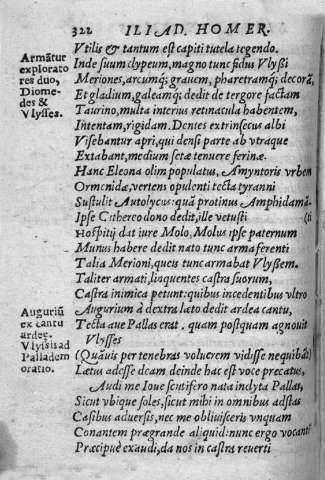 322 ILIAD. HOMER.
Vtilis & tantum est capiti tutela tegendo.
Armātur exploratores duo, Diomedes & Vlysses.
Inde suum clypeum, magno tunc fidus Vlyssi
Meriones, arcumq; grauem, pharetramq; decorā,
Et gladium, galeamq; dedit de tergore factam
Taurino, multa interius retinacula habentem,
Intentam, rigidam. Dentes extrinsecus albi
Visebantur apri, qui densi parte ab vtraque
Extabant, medium seta tenuere ferinæ.
Hanc Eleona olim populatus, Amyntoris vrbem
Ormenidæ, vertens opulenti tecta tyranni
Sustulit Autolycus: quā protinus Amphidamā-
Ipse Cithereo dono dedit, ille vetusti (ti
Hospitij dat iure Molo, Molus ipse paternum
Munus habere dedit nato tunc arma ferenti
Talia Merioni, queis tunc armabat Vlyssem.
Taliter armati, linquentes castra suorum,
Castra inimica petunt: quibus incedentibus vltro
Auguriū ex cantu ardeę.
Augurium à dextra lato dedit ardea cantu,
Tecta aue Pallas erat. quam postquam agnouit
Vlysses
Vlyssis ad Palladem oratio.
(Quāuis per tenebras volucrem vidisse nequibāt)
Lætus adesse deam deinde hac est voce precatus,
Audi me Ioue scutifero nata indyta Pallas,
Sicut vbique soles, sicut mihi in omnibus adstas
Casibus aduersis, nec me obliuisceris vnquam
Conantem prægrande aliquid: nunc ergo vocanti
Præcipuè exaudi, da nos in castra reuerti